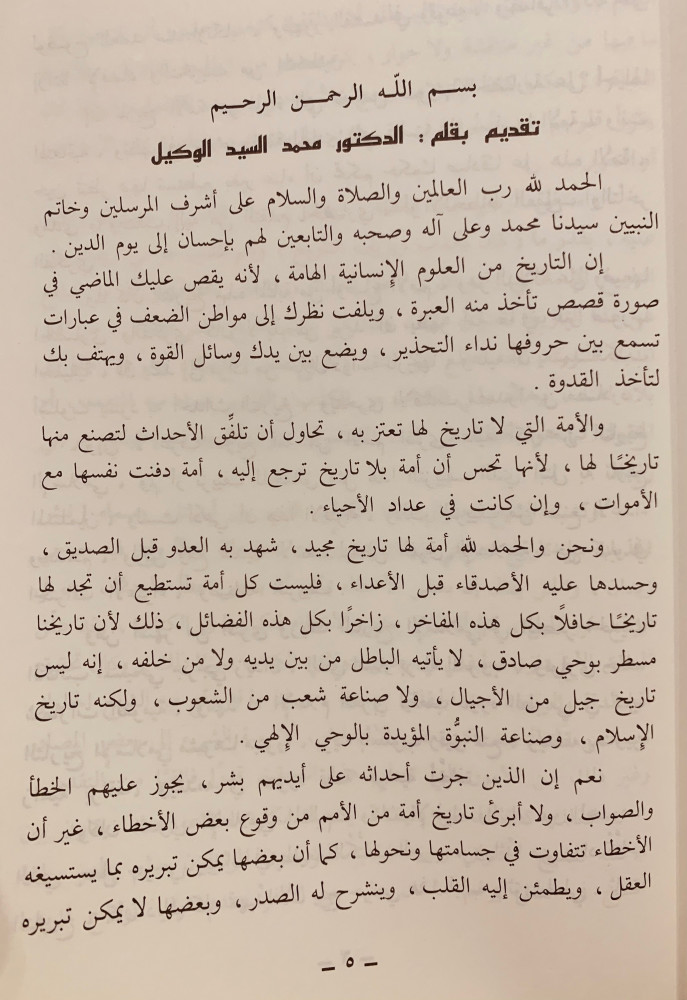 بسم اللّه الرحمن الرحيم
تقديم بقلم : الدكتور محمد السيد الوكيل
الحمد لله رب العالمين والصلاة والسلام على أشرف المرسلين وخاتم
النبيين سيدنا محمد وعلى آله وصحبه والتابعين لهم بإحسان إلى يوم الدين .
إن التاريخ من العلوم الإِنسانية الهامة ، لأنه يقص عليك الماضي في
صورة قصص تأخذ منه العبرة ، ويلفت نظرك إلى مواطن الضعف في عبارات
تسمع بين حروفها نداء التحذير ، ويضع بين يدك وسائل القوة ، ويهتف بك
لتأخذ القدوة .
والأمة التي لا تاريخ لها تعتز به ، تحاول أن تلفِّق الأحداث لتصنع منها
تاريخًا لها ، لأنها تحس أن أمة بلا تاريخ ترجع إليه ، أمة دفنت نفسها مع
الأموات ، وإن كانت في عداد الأحياء .
ونحن والحمد لله أمة لها تاريخ مجيد ، شهد به العدو قبل الصديق ،
وحسدها عليه الأصدقاء قبل الأعداء ، فليست كل أمة تستطيع أن تجد لها
تاريخًا حافلًا بكل هذه المفاخر ، زاخرًا بكل هذه الفضائل ، ذلك لأن تاريخنا
مسطر بوحي صادق ، لا يأتيه الباطل من بين يديه ولا من خلفه ، إنه ليس
تاريخ جيل من الأجيال ، ولا صناعة شعب من الشعوب ، ولكنه تاريخ
الإِسلام ، وصناعة النبوُّة المؤيدة بالوحي الإِلهي .
نعم إن الذين جرت أحداثه على أيديهم بشر ، يجوز عليهم الخطأ
والصواب ، ولا أبرئ تاريخ أمة من الأمم من وقوع بعض الأخطاء ، غير أن
الأخطاء تتفاوت في جسامتها ونحولها ، كما أن بعضها يمكن تبريره بما يستسيغه
العقل ، ويطمئن إليه القلب ، وينشرح له الصدر ، وبعضها لا يمكن تبريره
ــ ٥ ــ